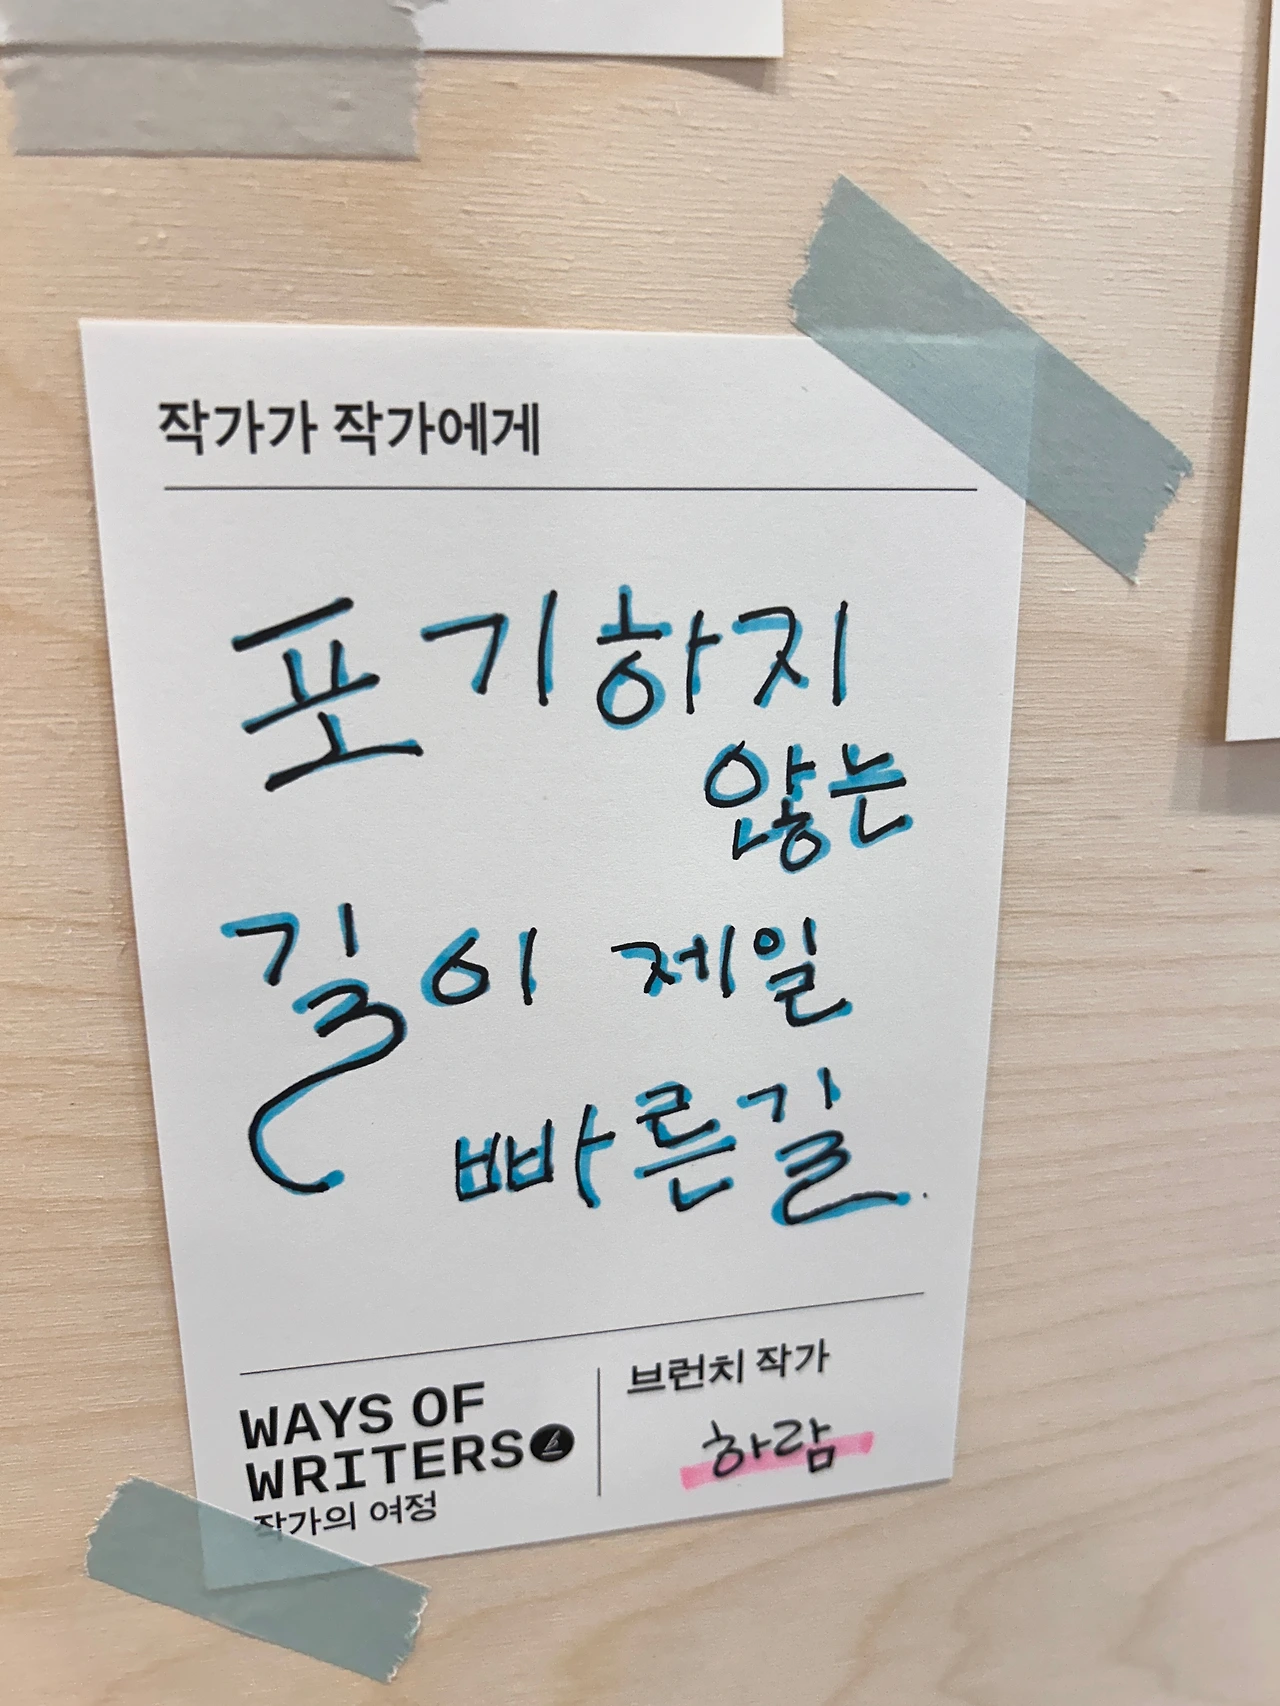 작가가 작가에게
포기하지
않는
길이 제일
빠른길.
WAYS OF
WRITERS
작가의 여정
브런치 작가
하람